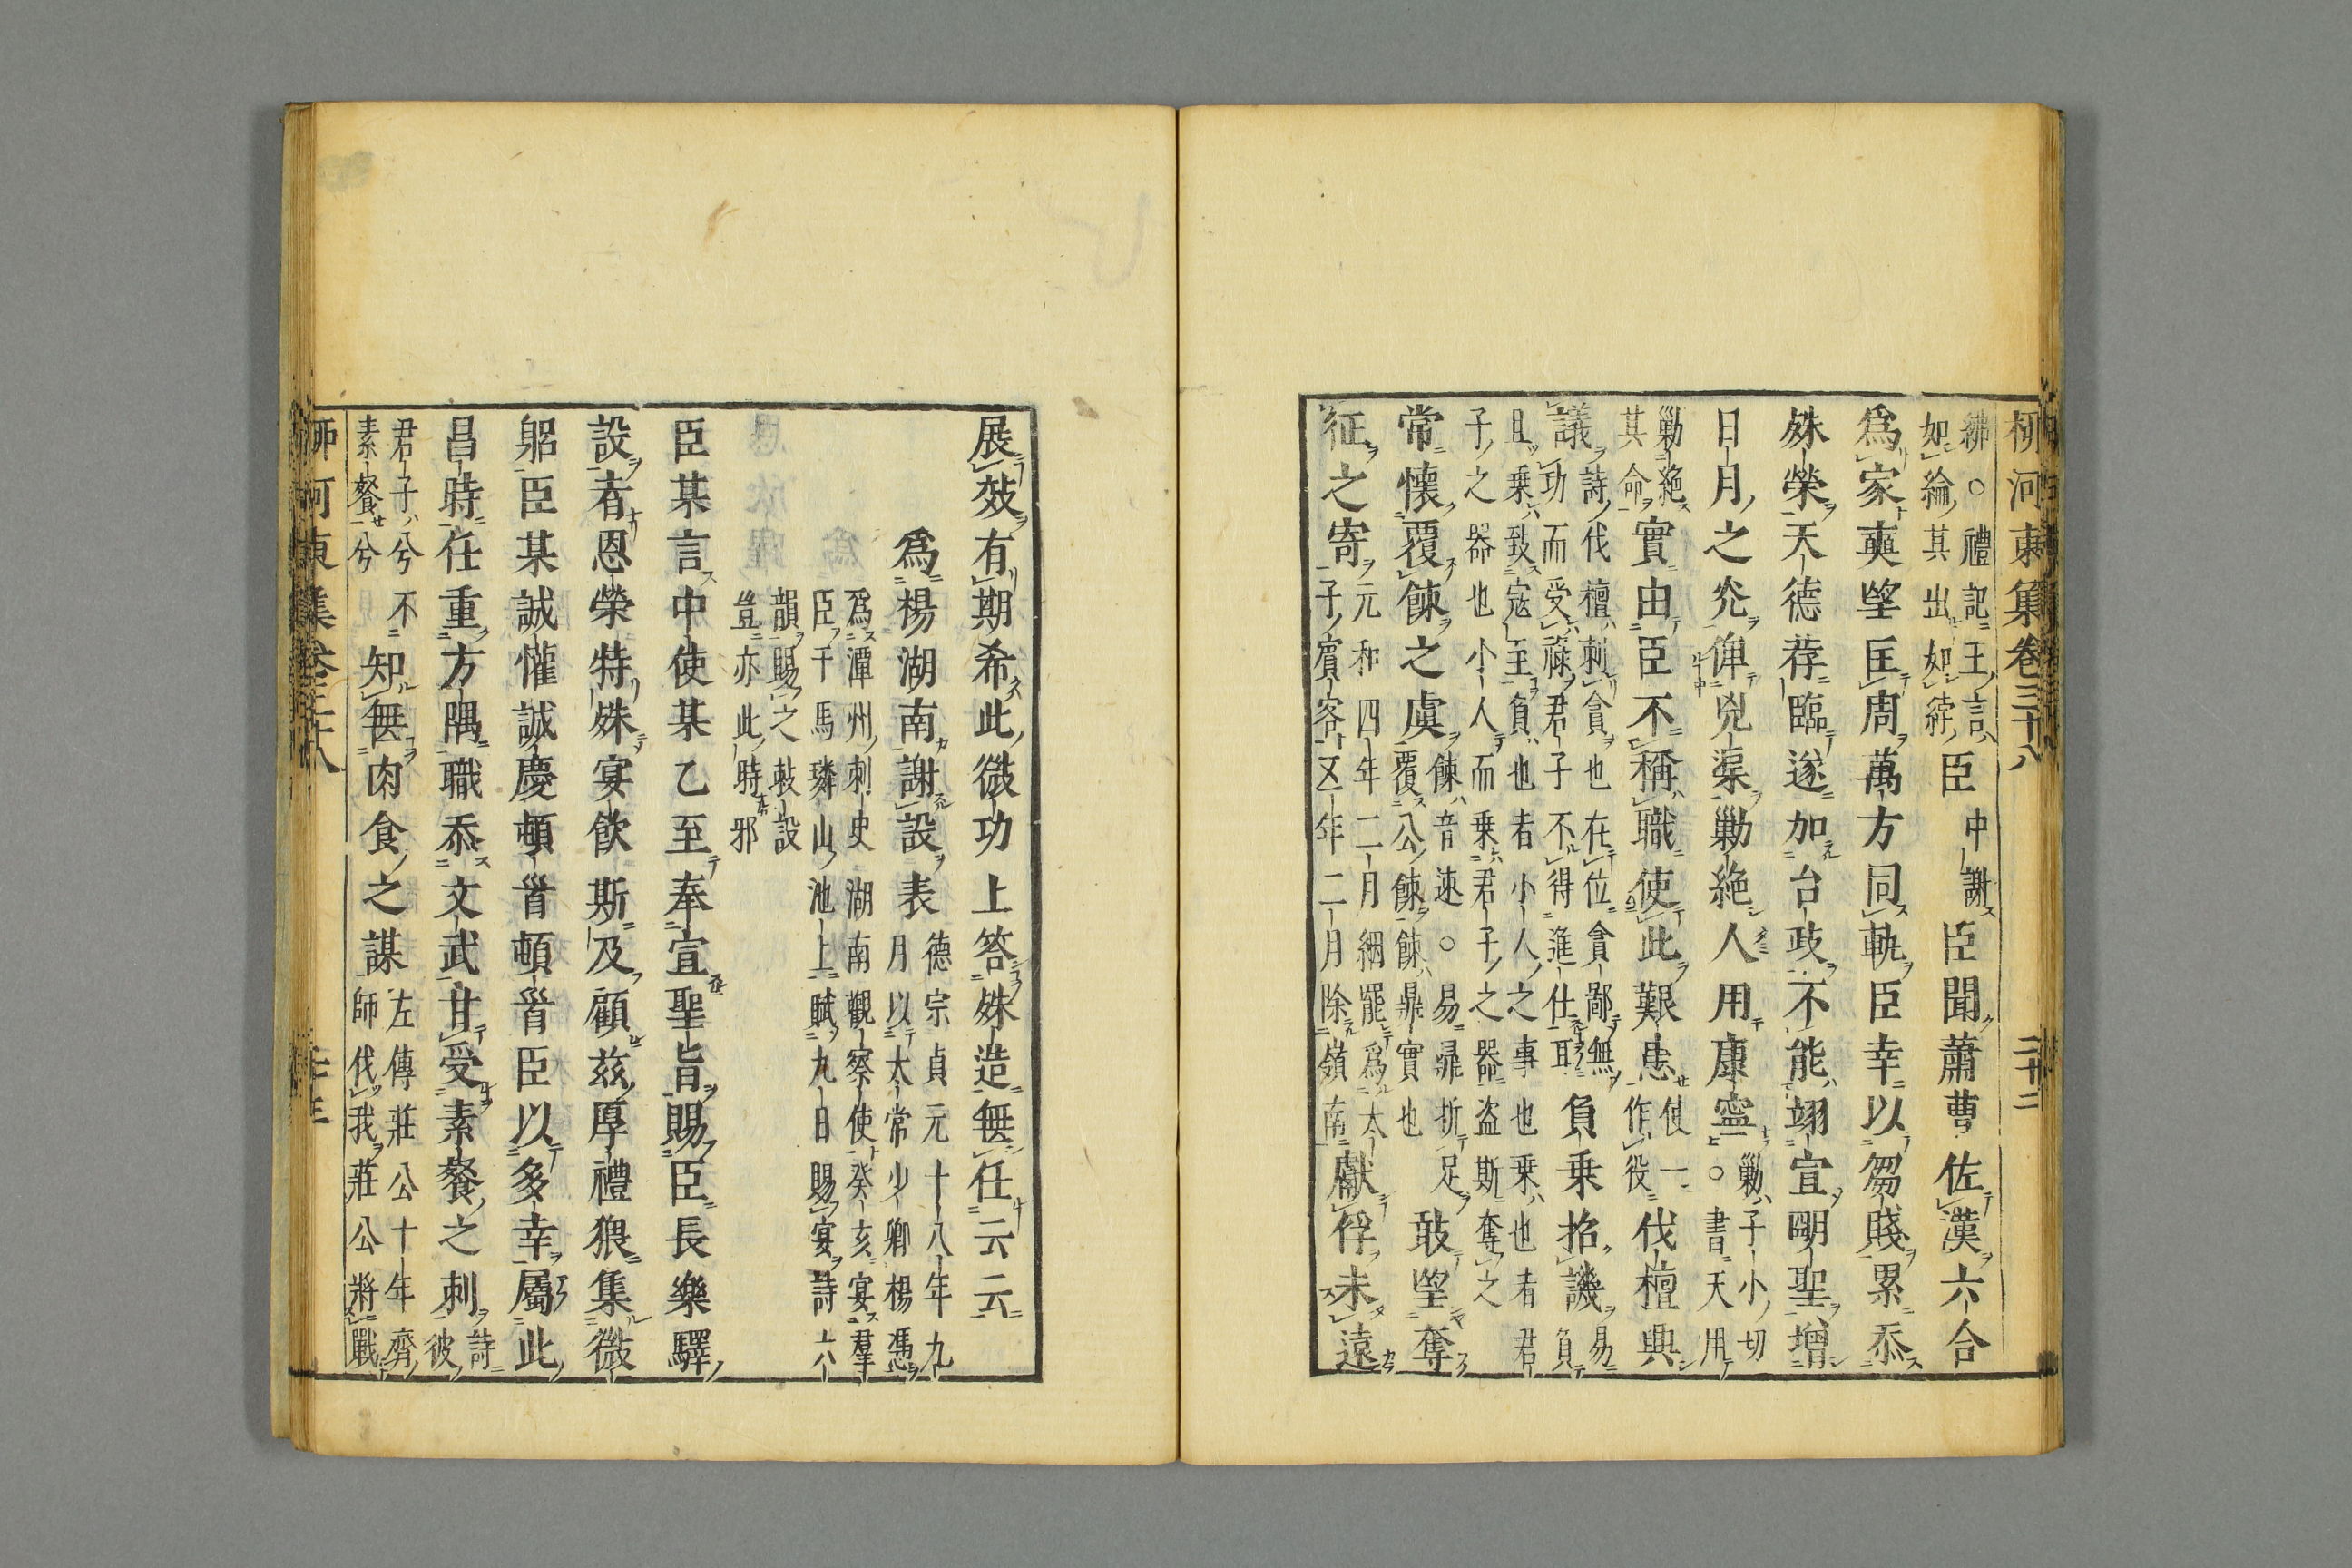 柳河東集卷三十八 二十二
綍○禮記王言如綸其出如綍臣中謝臣聞蕭曹佐漢六合
爲家奭望匡周萬方同軌臣幸以芻賤累忝
殊榮天德荐臨遂加台政不能翊宣明聖增
日月之光俾兇渠勦絶人用康寧勦子小切○書天用
勦絶其命實由臣不稱職使此艱患使一作役伐檀興
議詩伐檀刺貪也在位貪鄙無功而受祿君子不得進仕耶負乗招譏易負
且乗致寇至負也者小人之事也乗也者君子之器也小人而乗君子之器盗斯奪之
常懷覆餗之虞餗音速○易鼎折足覆公餗餗鼎實也敢望奪
征之寄元和四年二月絪罷爲太子賓客五年二月除嶺南獻俘未遠
展效有期希此微功上答殊造無任云云
爲楊湖南謝設表德宗貞元十八年九月以太常少卿楊憑
爲潭州刺史湖南觀察使癸亥宴羣臣于馬璘山池上賦九日賜宴詩六
韻賜之敕設豈亦此時邪
臣某言中使某乙至奉宣聖旨賜臣長樂驛
設者恩榮特殊宴飲斯及顧兹厚禮猥集微
躬臣某誠懽誠慶頓首頓首臣以多幸屬此
昌時任重方隅職忝文武甘受素餐之刺詩彼
君子兮不素餐兮知無肉食之謀左傳莊公十年齊師伐我莊公將戰
柳河東集卷三十八 二十三